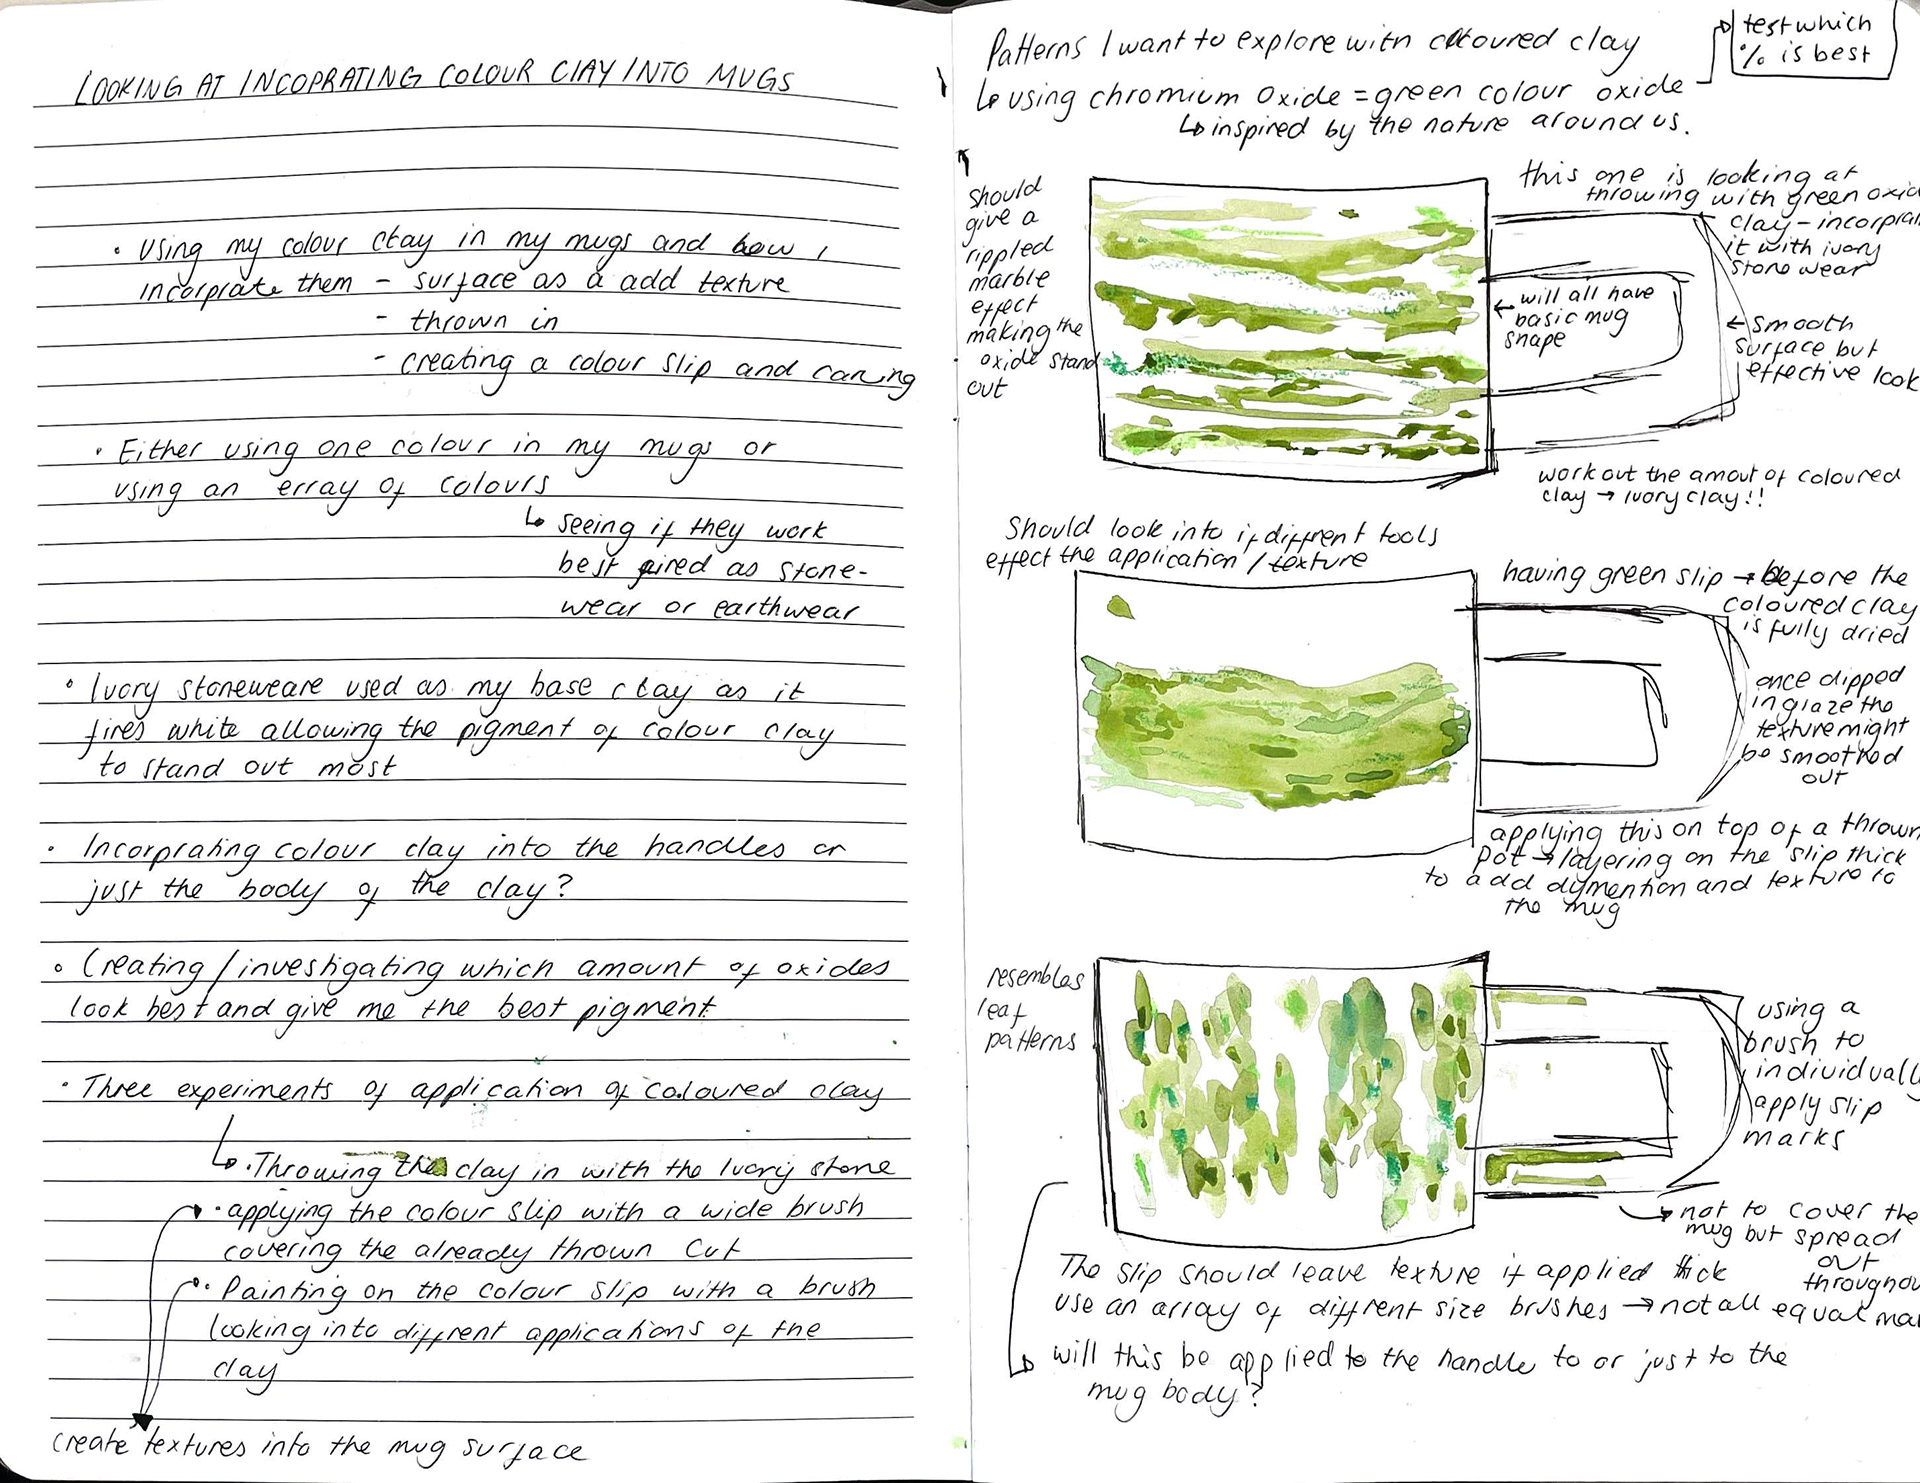 LOOKING AT INCOPRATING COLOUR CLAY INTO MUGS
• Using my colour clay in my mugs and how i
incorprate them - surface as a add texture
- thrown in
- creating a colour slip and carving
• Either using one colour in my mugs or
using an erray of colours
↳ seeing if they work
best fired as stone-
wear or earthwear
• Ivory stoneweare used as my base clay as it
fires white allowing the pigment of colour clay
to stand out most
• Incorprating colour clay into the handles or
just the body of the clay?
• Creating/investigating which amount of oxides
look best and give me the best pigment
• Three experiments of application of coloured clay
↳ • Throwing the clay in with the Ivory stone
• applying the colour slip with a wide brush
covering the already thrown Cut
• Painting on the colour slip with a brush
looking into diffrent applications of the
clay
create textures into the mug surface
Patterns I want to explore with coloured clay
↳ using chromium oxide = green colour oxide
test which
% is best
↳ inspired by the nature around us.
should
give a
rippled
marble
effect
making the
oxide stand
out
this one is looking at
throwing with green oxid
clay - incorprat
it with ivory
stonewear
← will all have
basic mug
shape
← smooth
surface but
effective look
work out the amout of coloured
clay → Ivory clay!!
Should look into if diffrent tools
effect the application / texture
having green slip → before the
coloured clay
is fully dried
once dipped
in glaze the
texture might
be smoothed
out
applying this on top of a thrown
pot → layering on the slip thick
to add dymention and texture to
the mug
resembles
leaf
patterns
using a
brush to
individually
apply slip
marks
→ not to cover the
mug but spread
out
throughou
The slip should leave texture if applied thick
use an array of diffrent size brushes → not all equal mar
will this be applied to the handle to or just to the
mug body?